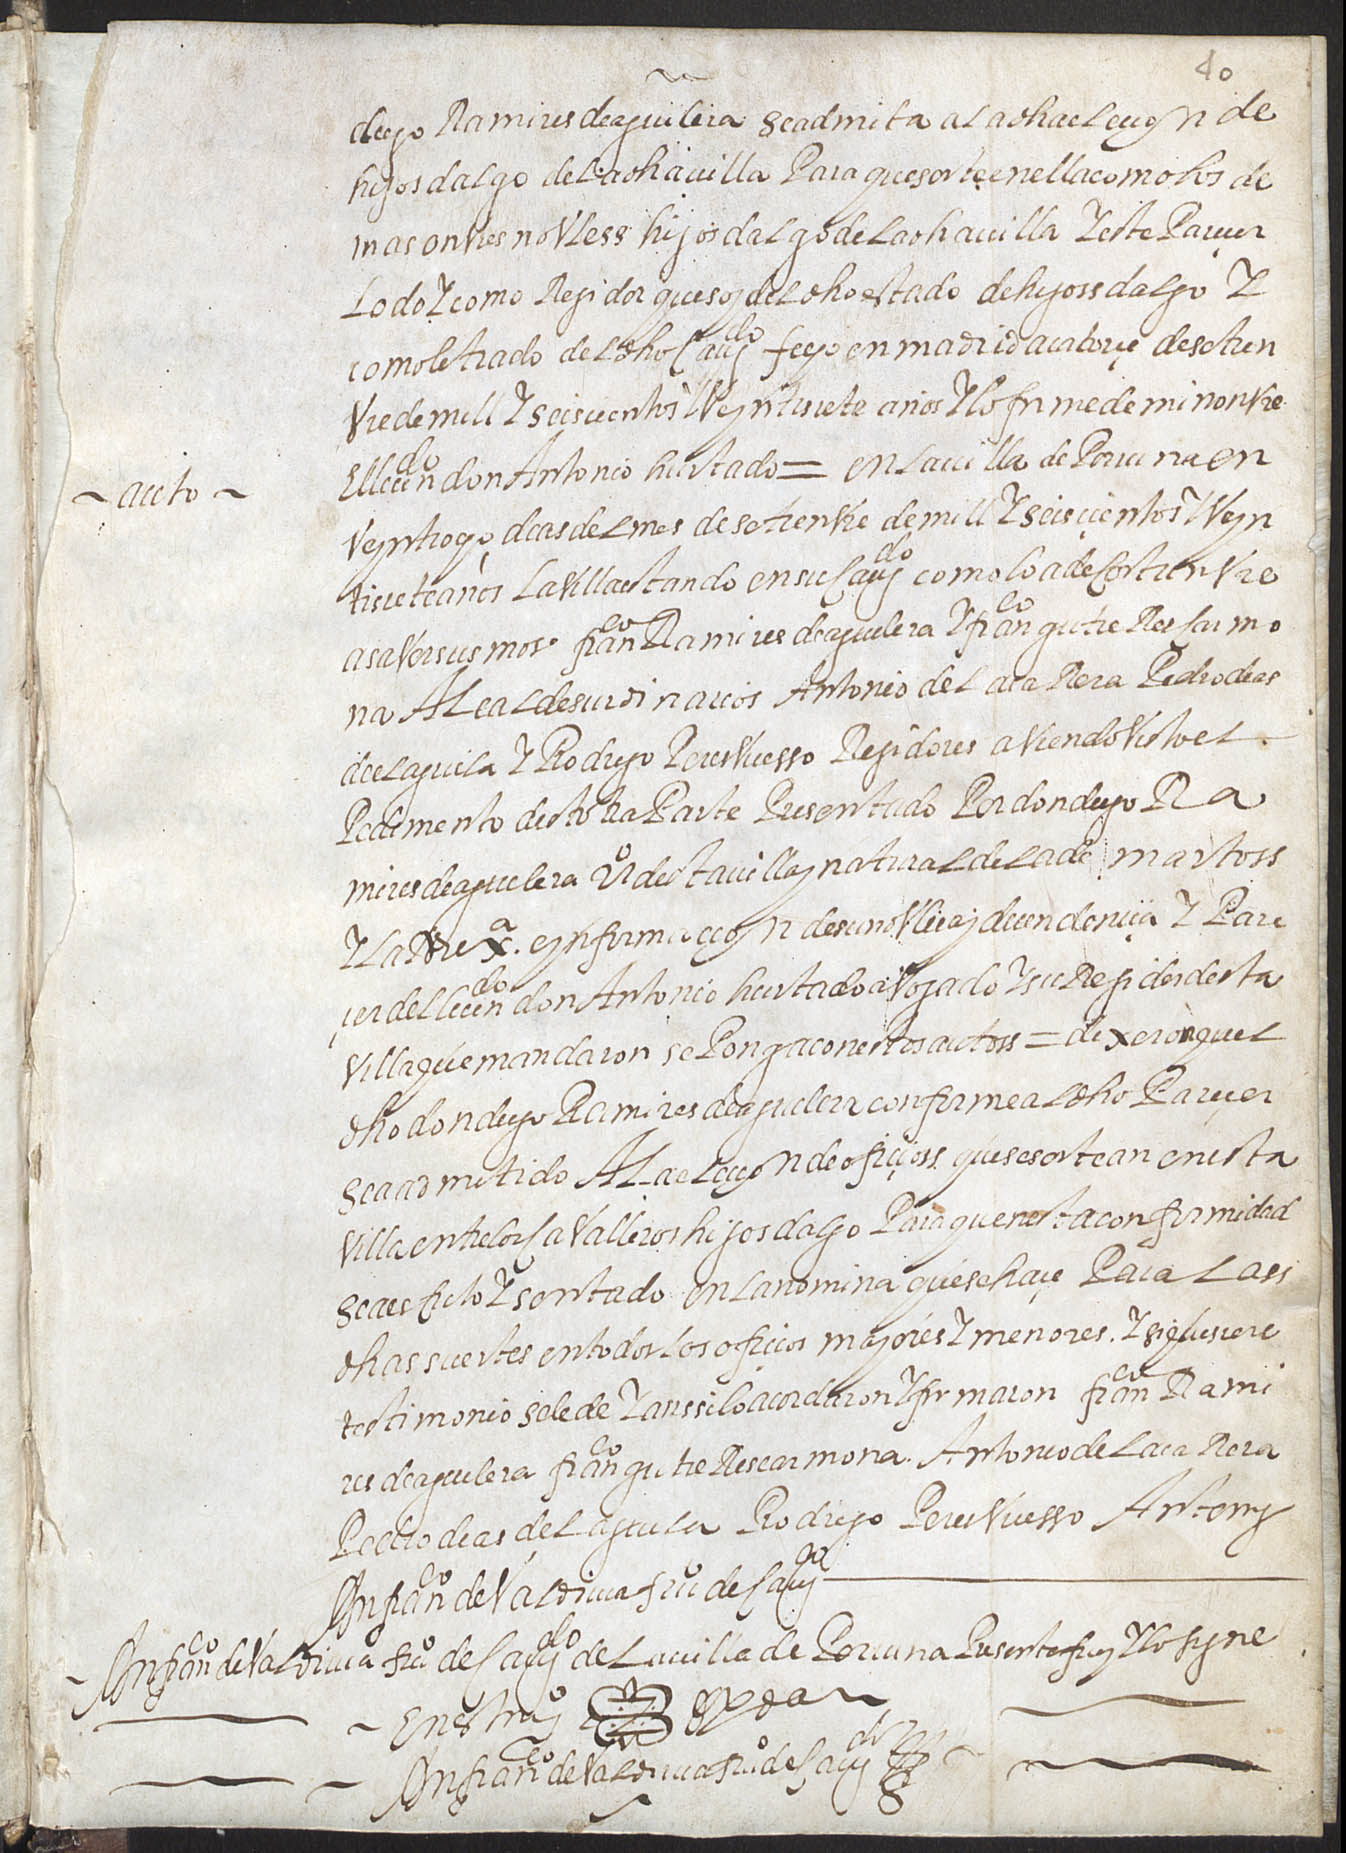 40
diego Ramires de aguilera se admita a la dha elecçion de
hijosdalgo de la dha uilla Para que sorte en ella como los de
mas onbres nobless hijosdalgo de la dha uilla Y este Pareçer
Lo doy Y como Regidor que soy del dho estado de hijossdalgo Y
como letrado del dho Cauydo fecho en madrid a catorçe de setien
Vre de mill Y seisçientos Y Veyntisiete años Y lo firme de mi nonvre
El licendo don Antonio hurtado = en la uilla de Porcuna en
~ aucto ~
Veyntiocho dias del mes de setienvre de mill Y seisçientos Y Veyn
tisiete años La Villa estando en su Cauydo como lo a de Costunvre
asaver sus mos. franco Ramires de aguilera Y franco gutierres Carmo
na ALcaldes urdinarios Antonio de La caRera Pedro dias
del aguila Y Rodrigo Peres Vuesso Regidores aViendo Visto el
Pedimento desta otra Parte Presentado Por don diego Ra
mires de aguilera Vº desta uilla y natural de la de martoss
Y La Rxa. e ynformaçion de su novleça y decendençia Y Pare
çer del licendo don Antonio hurtado avogado Y su Regidor desta
Villa que mandaron se Ponga con estos autoss = dixeron quel
dho don diego Ramires de aguilera conforme al dho Pareçer
sea admitido ALa elecion de ofiçioss que se sortean en esta
Villa entre los CaValleros hijosdalgo Para quen esta conformidad
sea escrito Y sentado en La nomina que se haçe Para Lass
dhas suertes en todos Los ofiçios mayores Y menores. Y si quisiere
testimonio se le de Y anssi lo acordaron Y firmaron franco Rami
res de aguilera franco gutieRes carmona. Antonio de La caRera
Pedro dias deL aguila Rodrigo Peres Vuesso Ante my
Juan franco de Valdiuia srio de Cauydo
~ Juan franco de Valdiuia srio de Cauydo de La uilla de Porcuna Presente fuy Y lo signe
~ En testimo de Verdad ~
~ Juan franco de Valdiuia srio de Cauydo